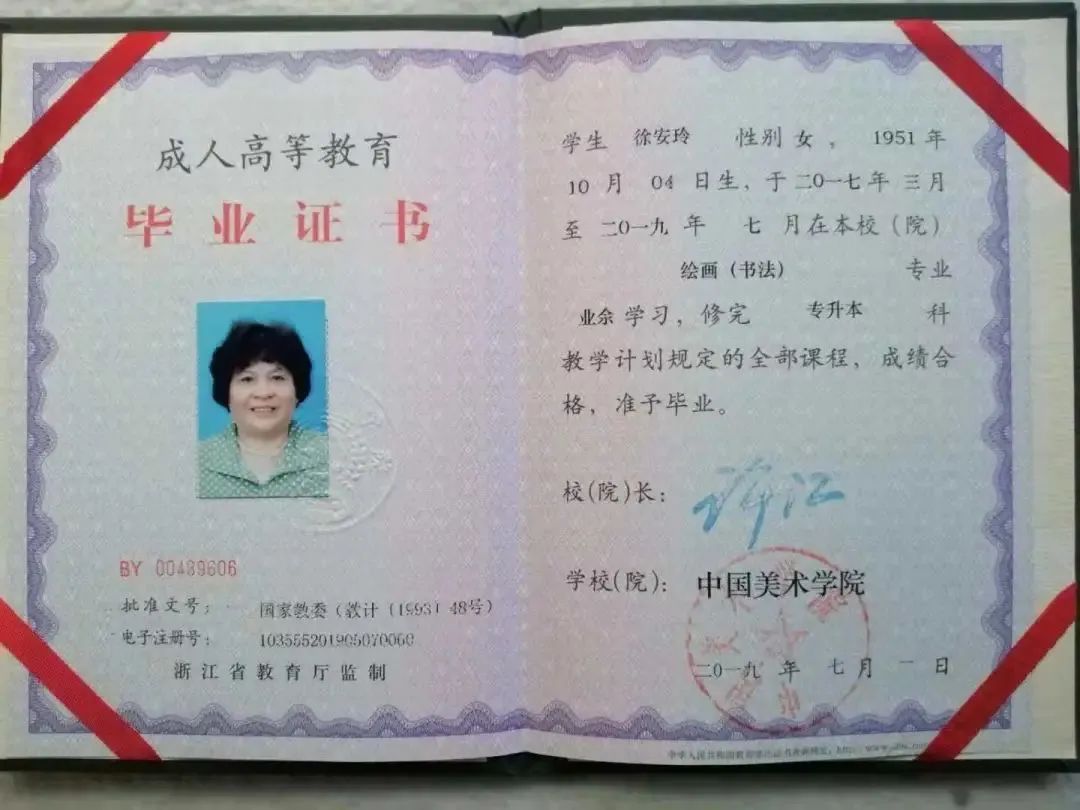 成人高等教育
毕业证书
BY 00489606
批准文号: 国家教委(教计(1993)48号)
电子注册号: 103555201905070060
浙江省教育厅监制
学生 徐安玲 性别 女, 1951 年
10 月 04 日生, 于二〇一七年 三月
至 二〇一九 年 七 月在本校(院)
绘画(书法) 专业
业余 学习, 修完 专升本 科
教学计划规定的全部课程, 成绩合
格, 准予毕业。
校(院)长: 许江
学校(院): 中国美术学院
二〇一九 年 七月 一日